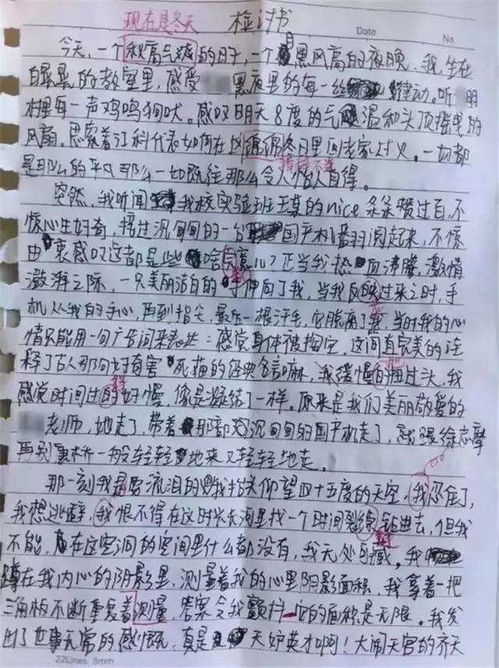 现在是冬天
检讨书
Date
No.
今天,一个秋高气爽的日子,一个月黑风高的夜晚,我,坐在
的教室里,感受黑夜里的每一丝律动。听
村里每一声鸡鸣狗吠。感叹明天8度的气温和头顶摇曳的
风扇。思索着江科代表如何在冬日里问老家过火。一切都
是那么的平凡那么一如既往那么令人怡人自得。
突然,我听闻我校实验班王某的nice条条赞过百,不
惊心生好奇,摸过沉甸甸的一台国产机翻阅起来,不惊
由衷感叹这都是些啥玩意儿?正当我热血沸腾,激情
澎湃之际,一只美丽洁白的手伸向了我,当我反映过来之时,手
机从我的手心,再到指尖,最后一根汗毛,它脱离了我,当时我的心
情只能用一句广告词来表达:感觉身体被掏空,这间直完美的诠
释了古人那句好奇害死猫的经典名言嘛,我缓慢的扭过头,我
感觉时间过的好慢,像是凝结了一样。原来是我们美丽敬爱的
老师,她走了,带着那部沉甸甸的国产机走了,就跟徐志摩
再别康桥一般轻轻地来又轻轻地走。
那一刻我是要流泪的,我抬头仰望四十五度的天空,我忍住了,
我想逃避,我恨不得在这时光长河里找一个时间裂缝钻进去,但我
不能,在这空洞的空间里什么都没有,我无处可藏。我
蹲在我内心的阴影里,测量着我的心里阴影面积,我拿着一把
三角板不断重复着测量,答案令我颤抖,它的面积是无限。我发
出了世事无常的感慨,真是天妒英才啊!大闹天宫的齐天
22Lines 8mm